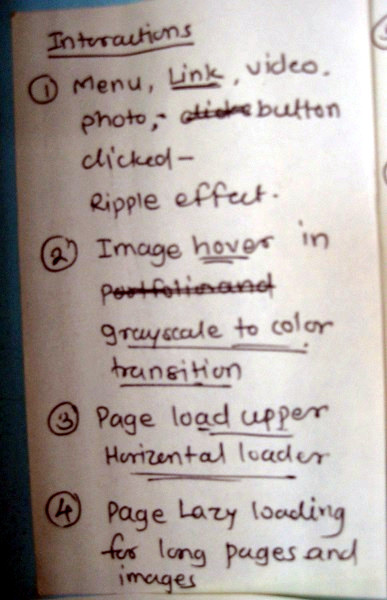 Interactions
① Menu, Link, video.
photo,- clicks button
clicked -
Ripple effect.
② Image hover in
portfolio and
grayscale to color
transition
③ Page load upper
Horizental loader
④ Page Lazy loading
for long pages and
images